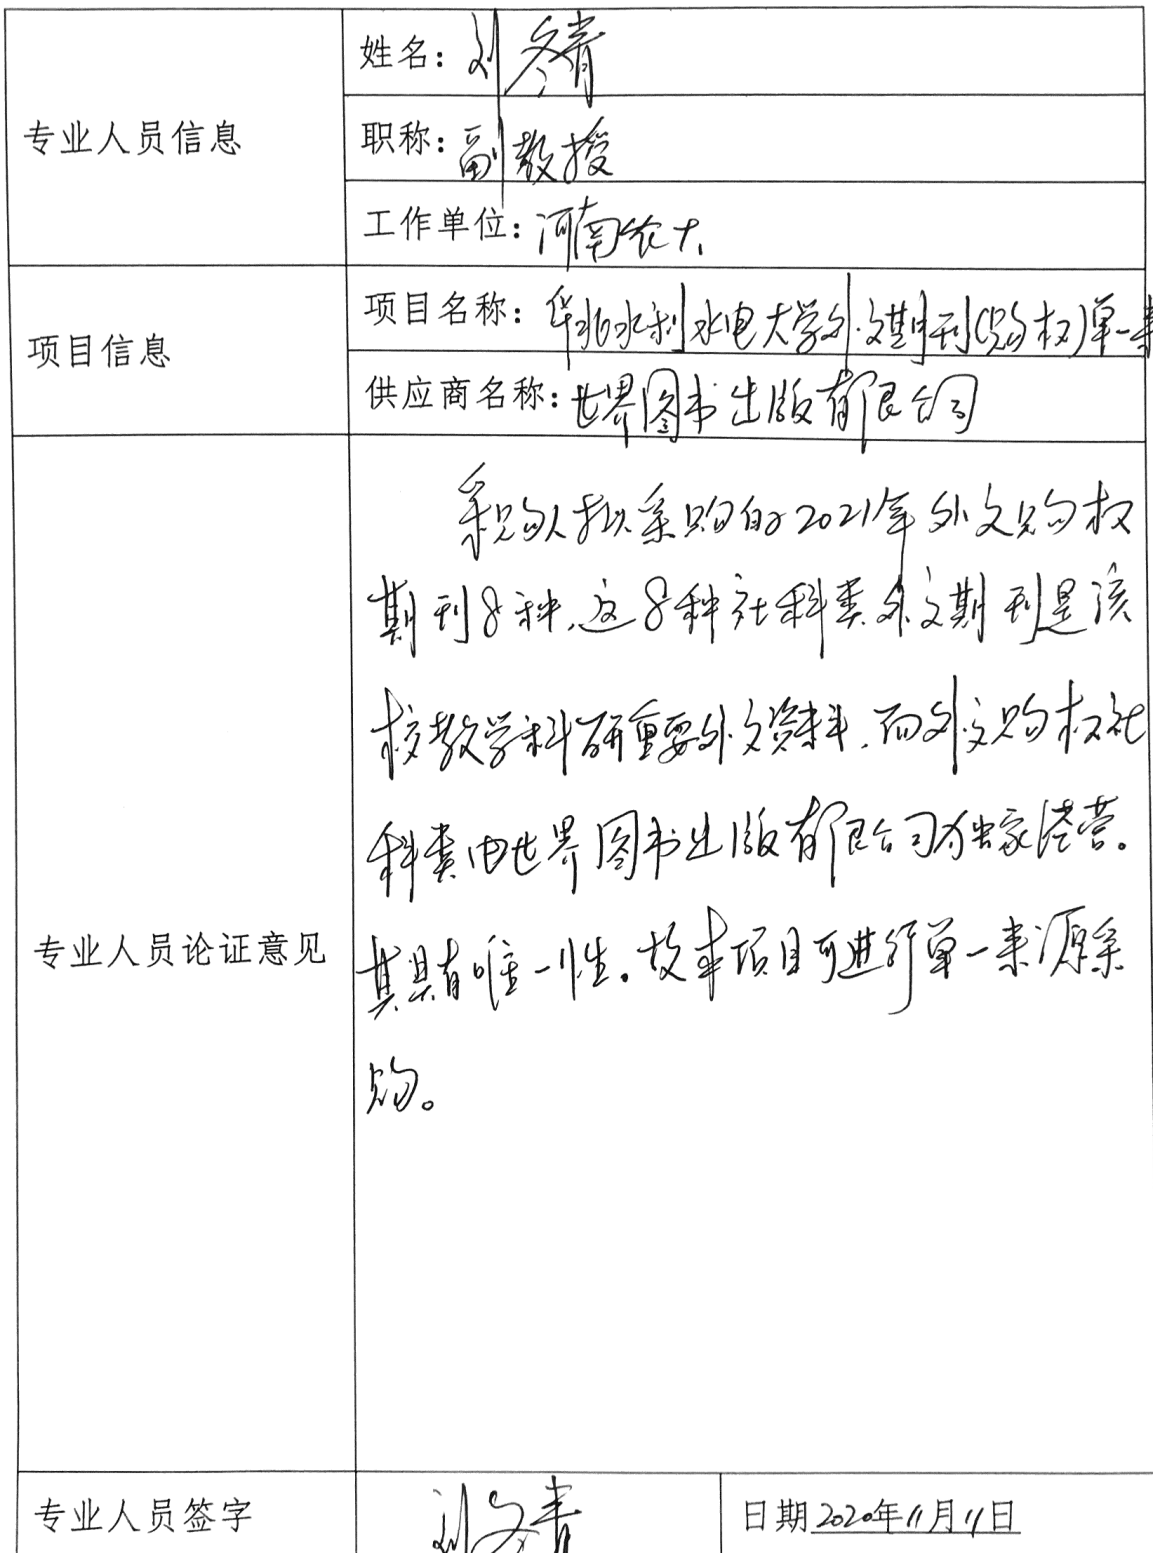 姓名：刘冬青
专业人员信息
职称：副教授
工作单位：河南农大
项目信息
项目名称：华北水利水电大学外文期刊(购权)单一来
供应商名称：世界图书出版有限公司
采购人拟采购的2021年外文购权
期刊8种，这8种社科类外文期刊是该
校教学科研重要外文资料，而外文购权社
科类由世界图书出版有限公司独家经营。
其具有唯一性。故本项目可进行单一来源采
购。
专业人员论证意见
专业人员签字
刘冬青
日期2020年11月11日